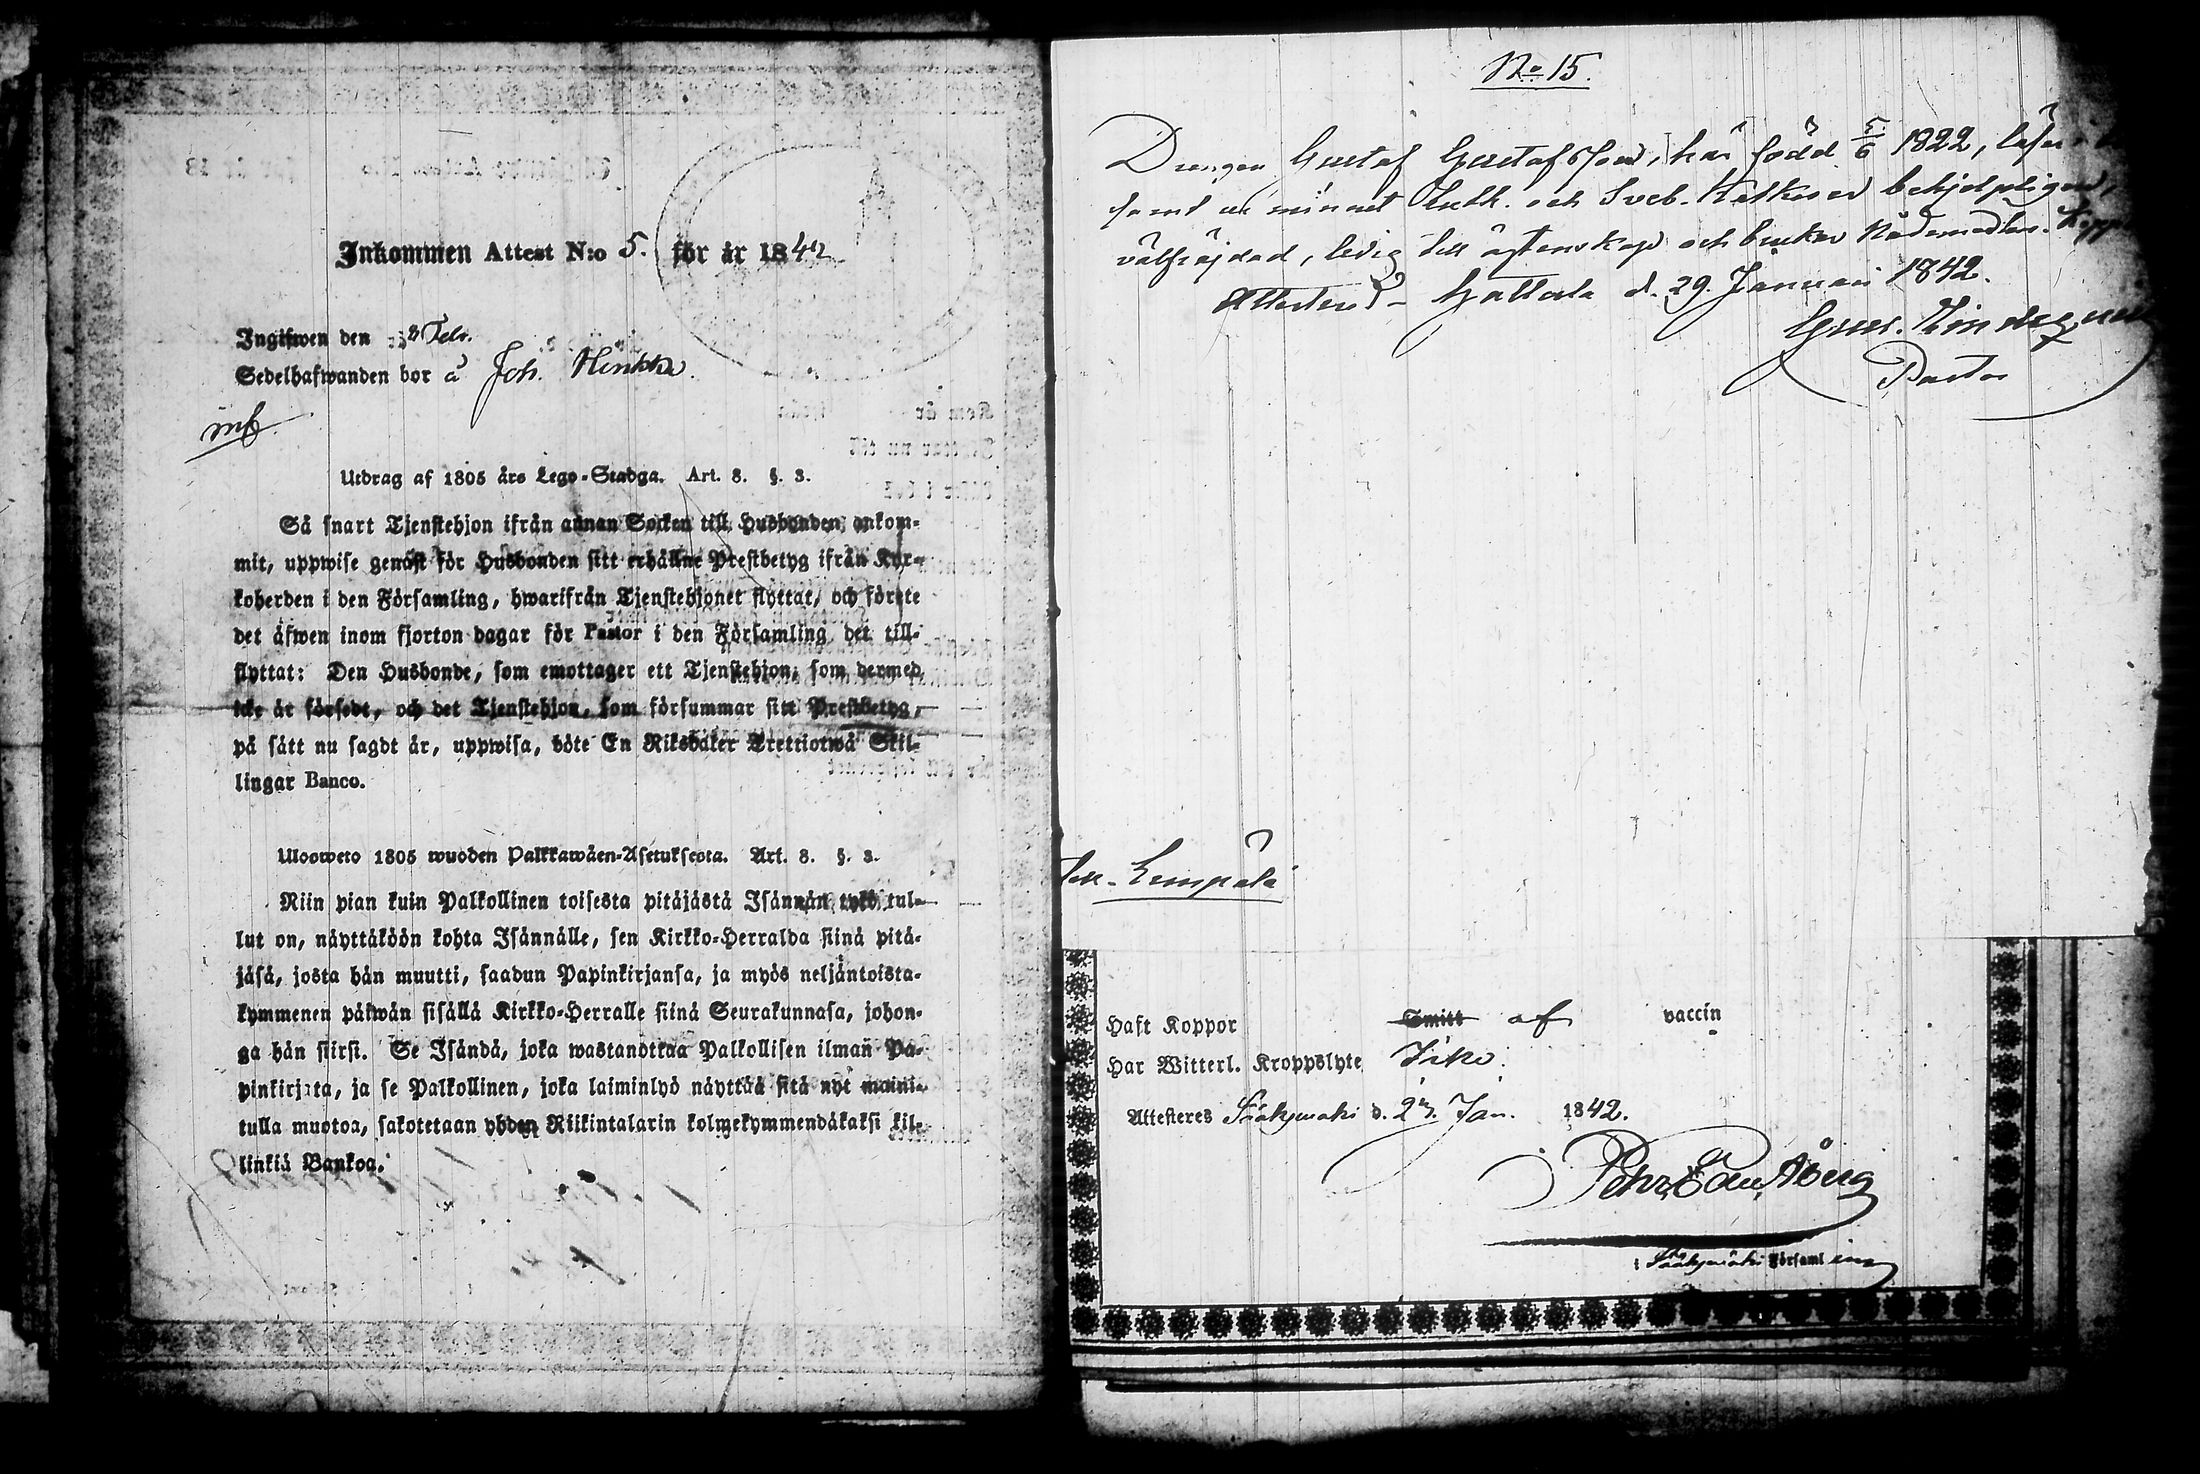 Inkommen Attest N:o 5. för år 1842
Ingifwen den 3 Febr.
Sedelhafwanden bor å Joh. Hinkka.
Utdrag af 1805 års Lego-Stadga. Art. 8. §. 3.
Så snart Tjenstehjon ifrån annan Socken till Husbonden ankom-
mit, uppwise genast för Husbonden sitt erhållne Prestbetyg ifrån Kyr-
koherden i den Församling, hwarifrån Tjenstehjonet flyttat, och förete
det äfwen inom fjorton dagar för Pastor i den Församling det till-
flyttat: Den Husbonde, som emottager ett Tjenstehjon, som dermed
icke är försedt, och det Tjenstehjon, som försummar sitt Prestbetyg,
på sätt nu sagdt är, uppwisa, böte En Riksdaler Trettiotwå Skil-
lingar Banco.
Ulosweto 1805 wuoden Palkkawäen-Asetuksesta. Art. 8. §. 3.
Niin pian kuin Palkollinen toisesta pitäjästä Isännän tykö tul-
lut on, näyttäköön kohta Isännälle, sen Kirkko-Herralda siinä pitä-
jäsä, josta hän muutti, saadun Papinkirjansa, ja myös neljäntoista-
kymmenen päiwän sisällä Kirkko-Herralle siinä Seurakunnasa, johon-
ga hän siirsi. Se Isändä, joka wastanottaa Palkollisen ilman Pa-
pinkirjata, ja se Palkollinen, joka laiminlyö näyttää sitä nyt maini-
tulla muotoa, sakotetaan yhden Riikintalarin kolmekymmendäkaksi kil-
linkiä Bankoa.
No 15.
Drengen Gustaf Gustafsson, här född 5/6 1822, läser
samt ur minnet Luth. och Sveb. Katkeser behjelpligen,
välfräjdad, ledig till äktenskap och brukar Nådemedlen.
Attesterar Hattula d. 29. Januari 1842.
Gust.
Pastor
till Lempälä
Haft Koppor Smitt af vaccin
Har Witterl. Kroppslyte Icke.
Attesteres Sääksmäki d. 27. Jan. 1842.
Pehr Edv. Åberg
i Sääksmäki Församling